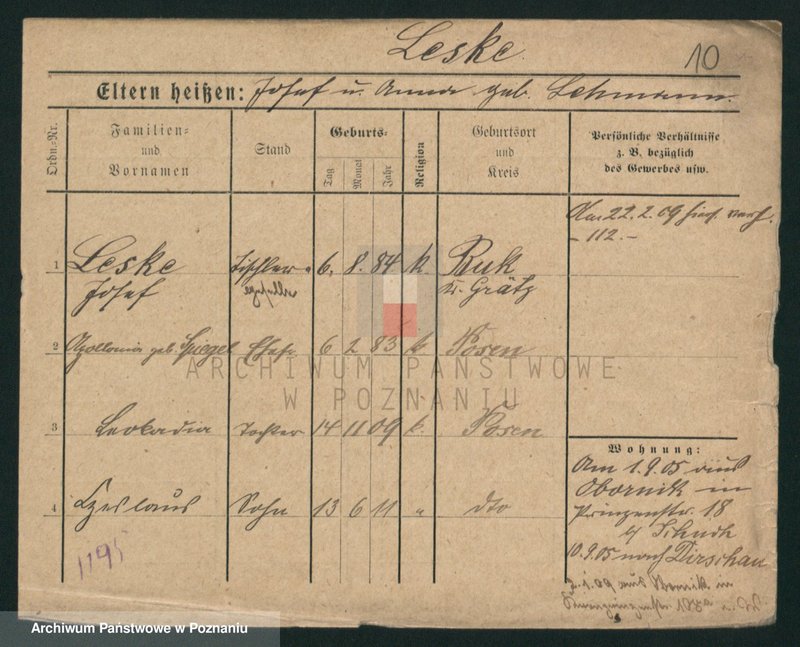 Leske.
10
Eltern heißen: Josef u. Anna geb. Lehmann.
Ordn.-Nr.
Familien- und Vornamen
Stand
Geburts-
Tag
Monat
Jahr
Religion
Geburtsort und Kreis
Persönliche Verhältnisse z. B. bezüglich des Gewerbes usw.
Am 22.2.09 hier verh.
- 112. -
1 Leske Tischler- 6. 8. 84 k. Buk
Josef geselle Kr. Grätz
2 Apollonia geb. Spiegel Ehefr 6 2 83 k Posen
3 Leokadia Tochter 14 11 09 k. Posen
Wohnung:
Am 1.9.05 aus
Obornik in
4 Czeslaus Sohn 13 6 11 " dto
Prinzenstr. 18
b/ Schuch
10.9.05 nach Dirschau
2.1.09 aus in
1195
ARCHIWUM PAŃSTWOWE
W POZNANIU
Archiwum Państwowe w Poznaniu